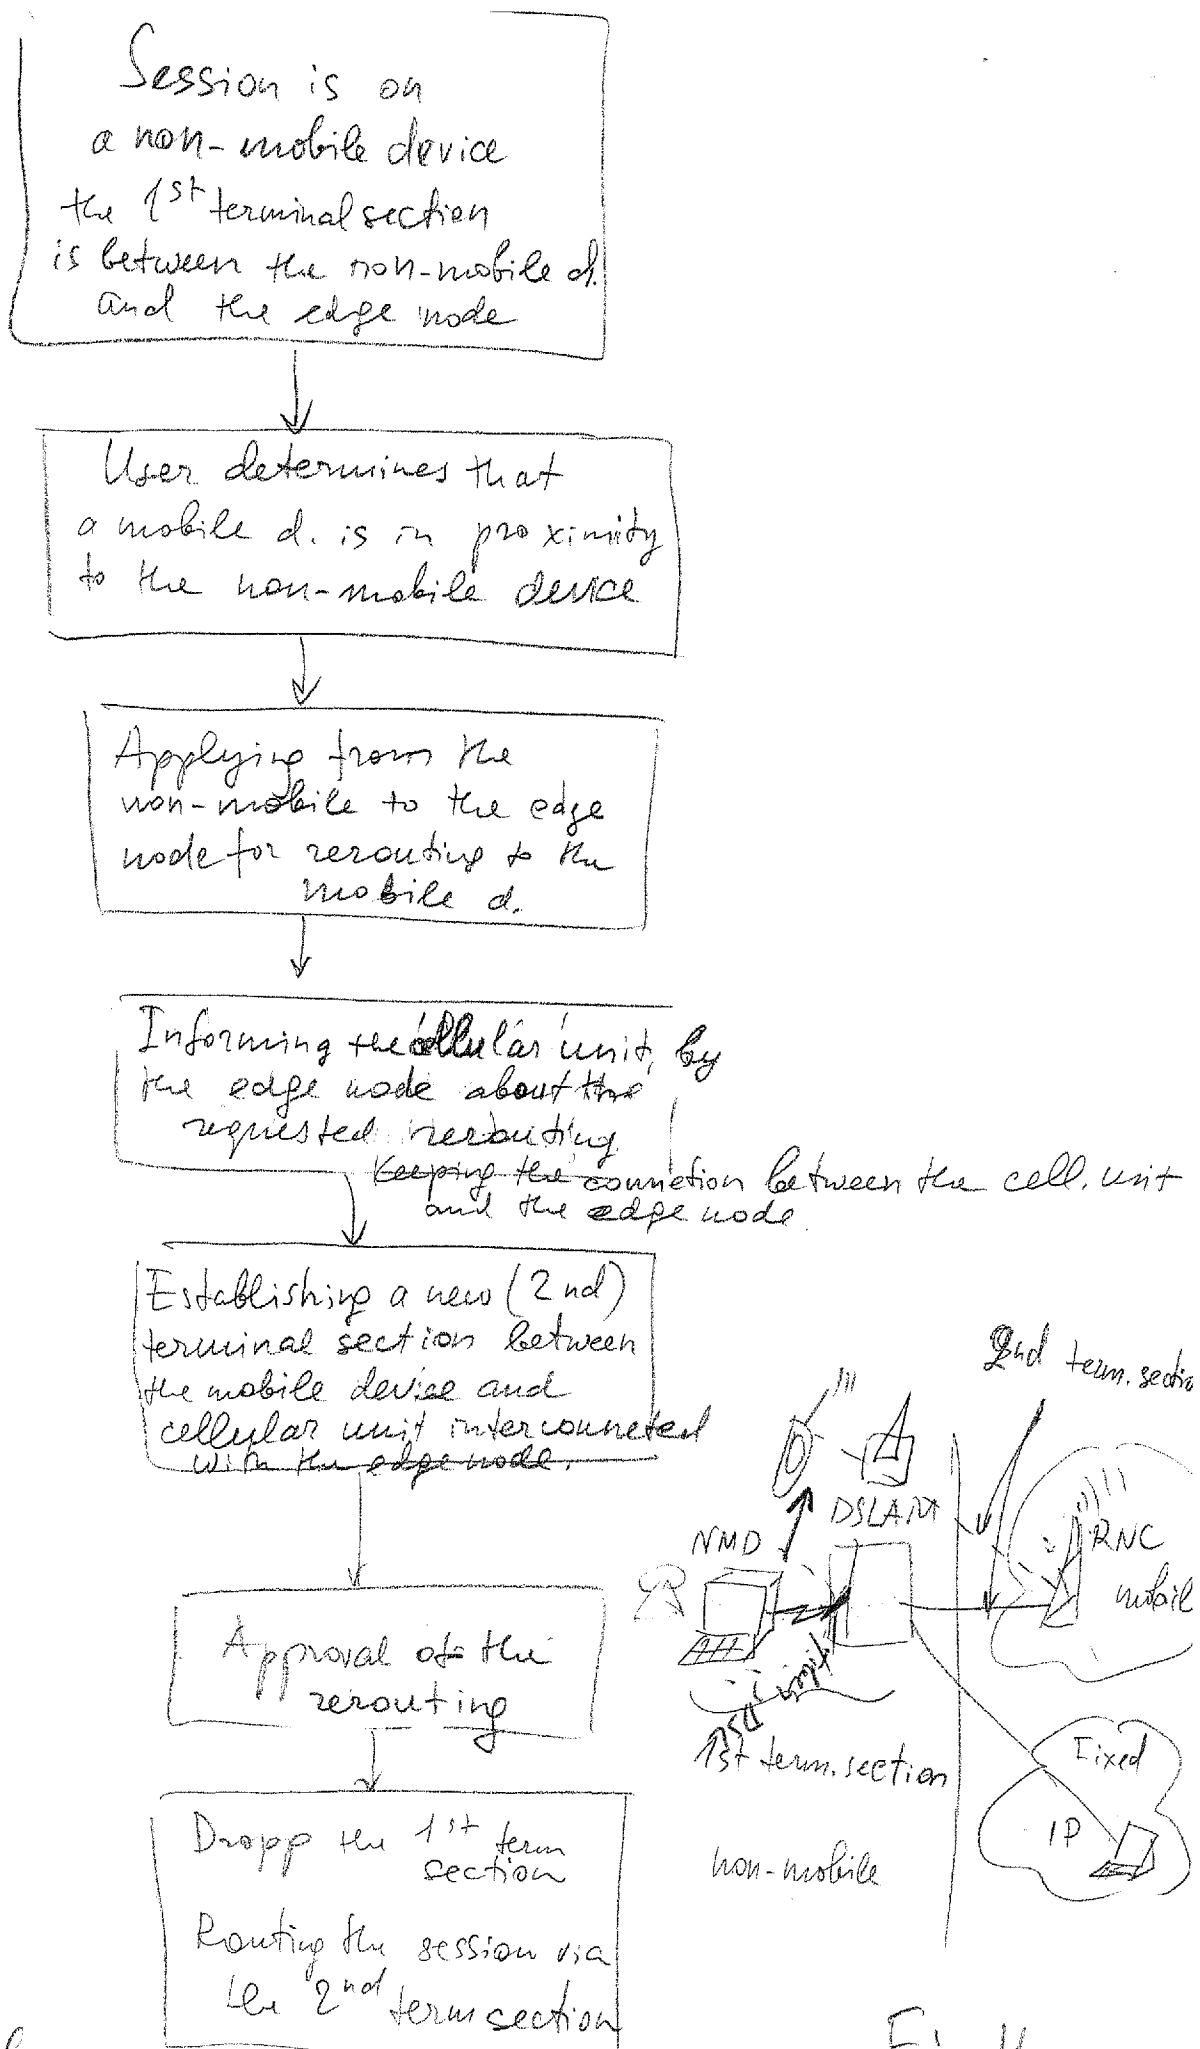 Session is on
a non-mobile device
the 1st terminal section
is between the non-mobile d.
and the edge node
User determines that
a mobile d. is in proximity
to the non-mobile device
Applying from the
non-mobile to the edge
node for rerouting to the
mobile d.
Informing the cellular unit, by
the edge node about the
requested rerouting
Keeping the connetion between the cell. unit
and the edge node.
Establishing a new (2nd)
terminal section between
the mobile device and
cellular unit interconneted
with the edge node.
Approval of the
rerouting
Dropp the 1st term
section
Routing the session via
the 2nd term section
2nd term. sectio
DSLAM
NMD
RNC
mobil
1st term. section
Fixed
IP
non-mobile